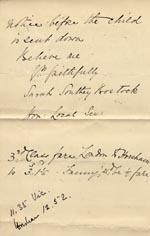 notice before the child
is sent down
Believe me
Yrs faithfully
Sarah Southey
Hon: Local Sec
3rd Class fare London to Horsham
11.35 Vic.
Horsham 12.52.